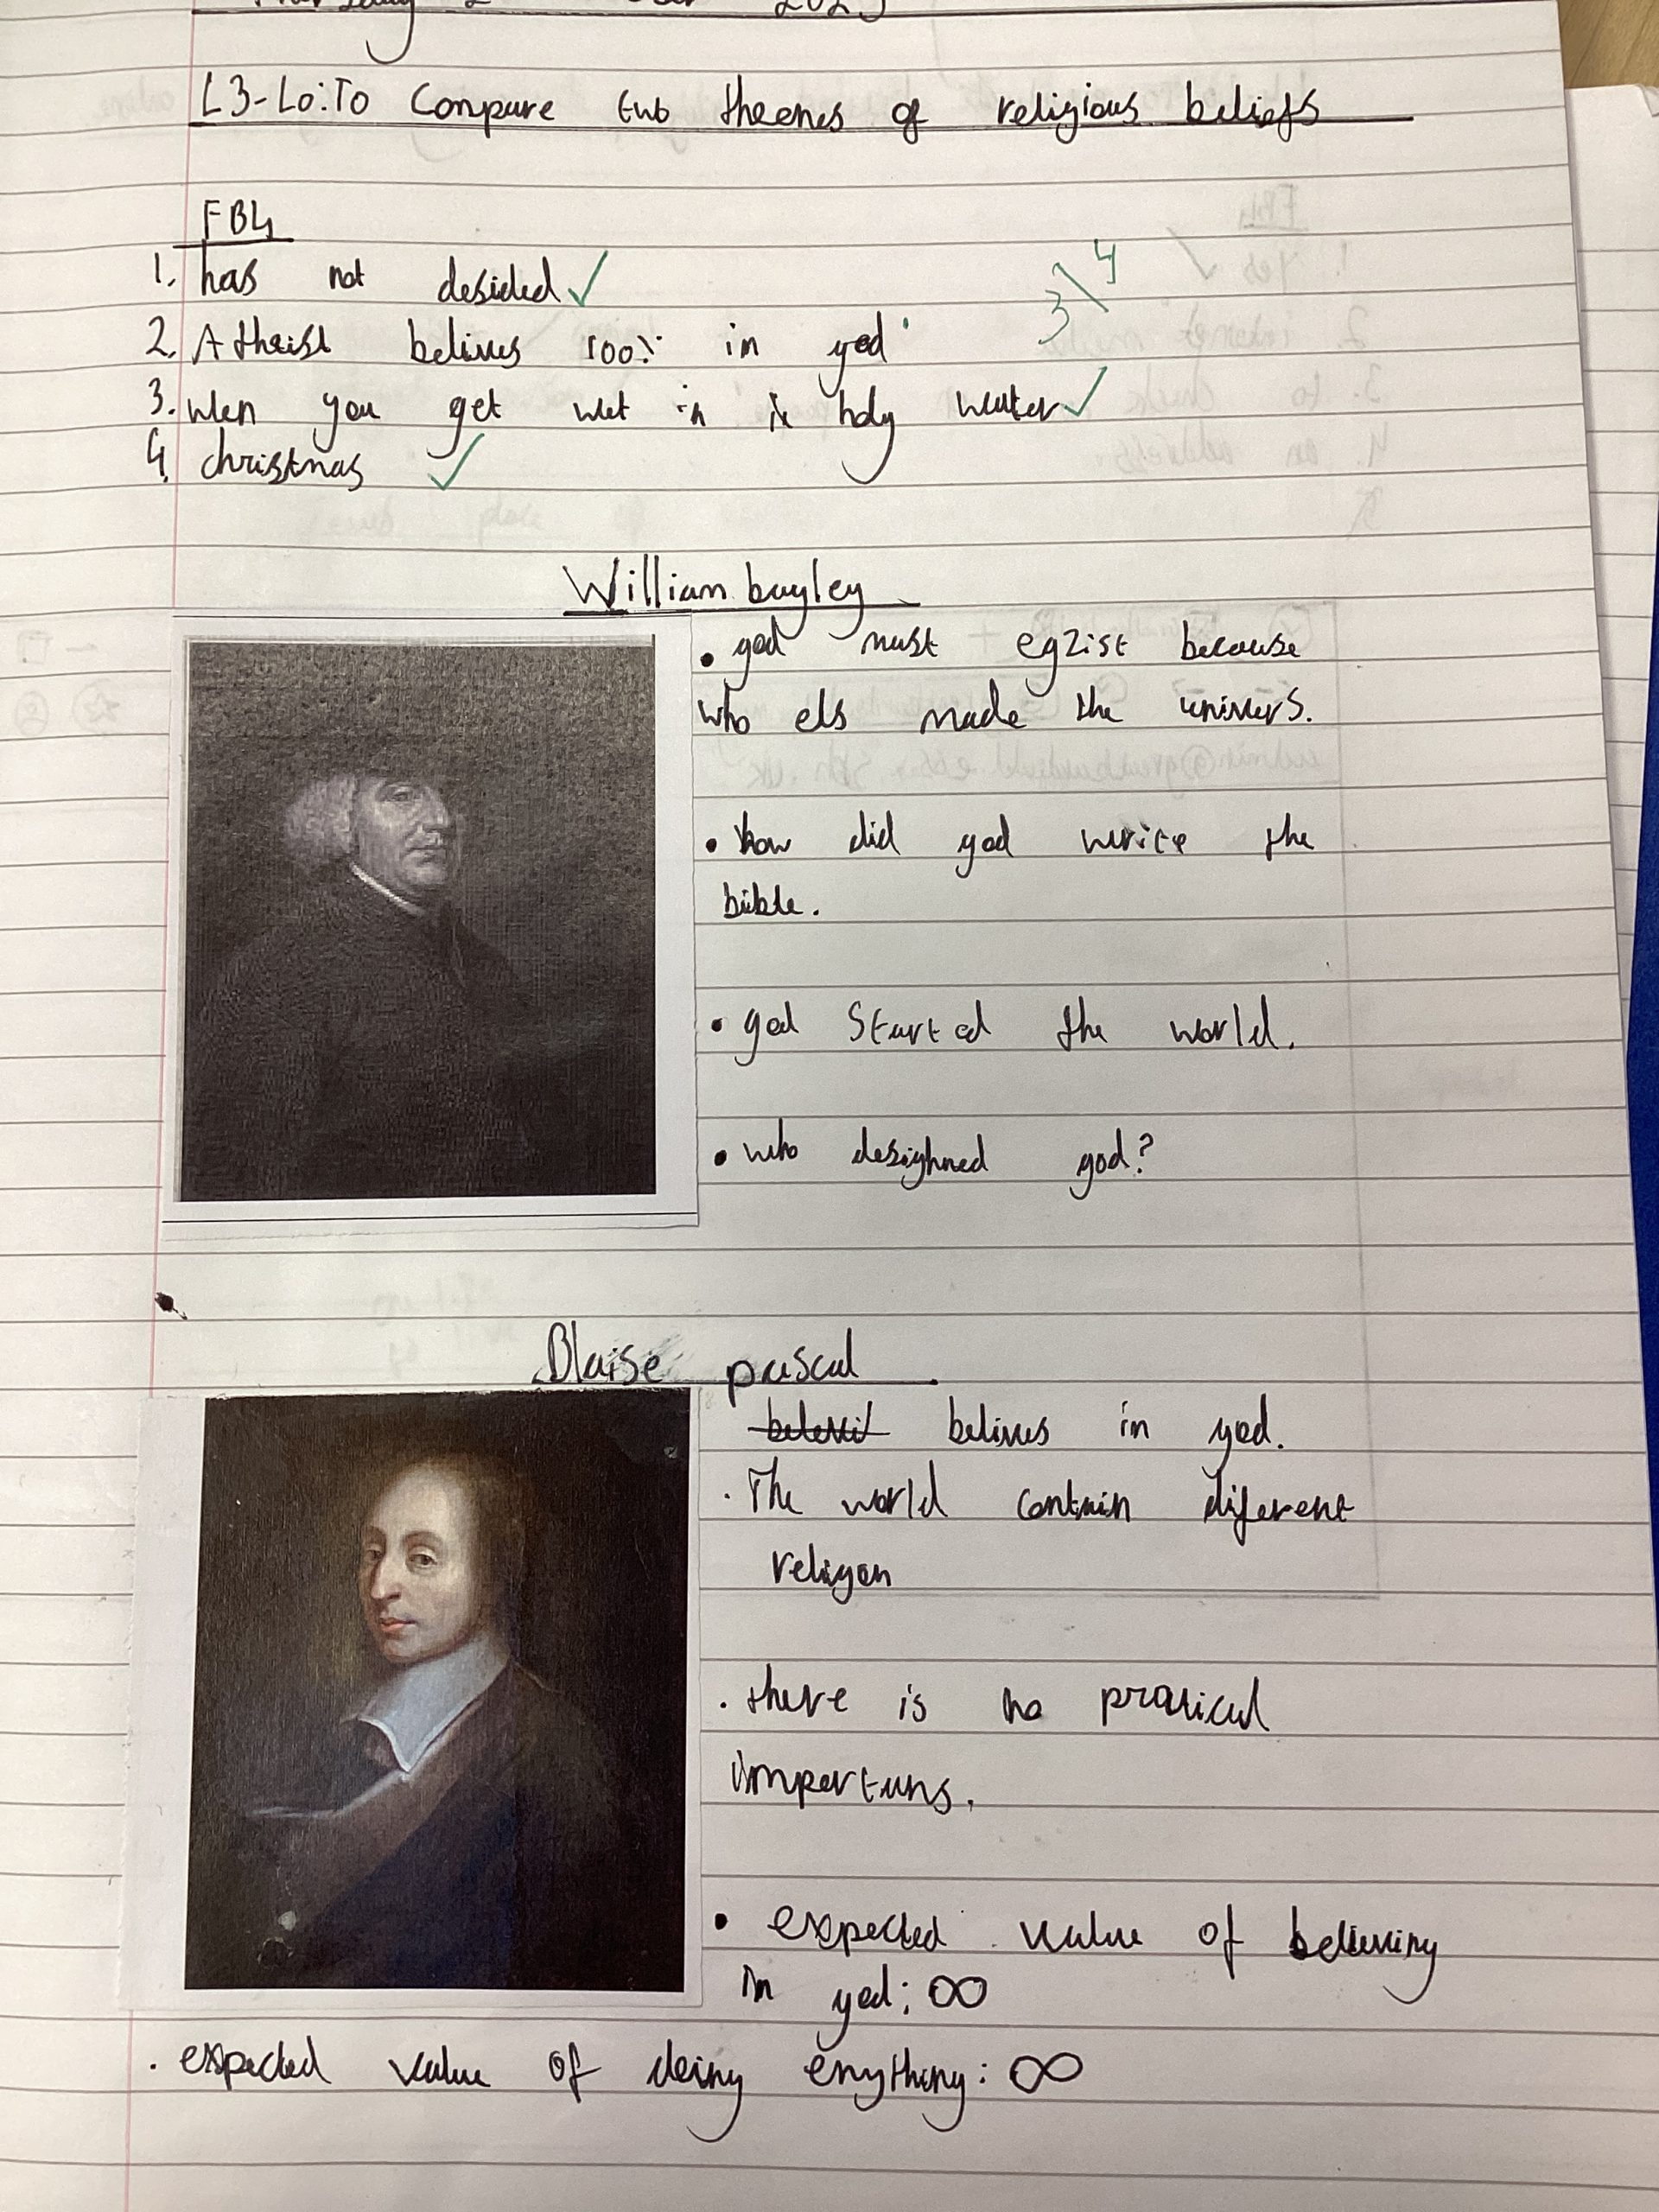 2025
L3-Lo:To Compare two theenes of religious beliefs
FB4
1. has not desided ✓
3\4
2. Atheist belives 100% in god
3. when you get wet in holy water ✓
4. christmas ✓
William bayley
• god must egzist because
who els made the univers.
• how did god write the
bible.
• god Started the world.
• who desighned god?
Blaise pascal
belives in god.
. The world contain diferent
religon
. there is no pratical
impertans.
• expected value of believing
in god; ∞
. expected value of doing enything: ∞